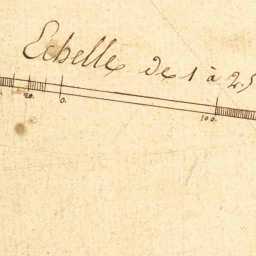 Echelle de 1 à 2.5
20. 0. 100.